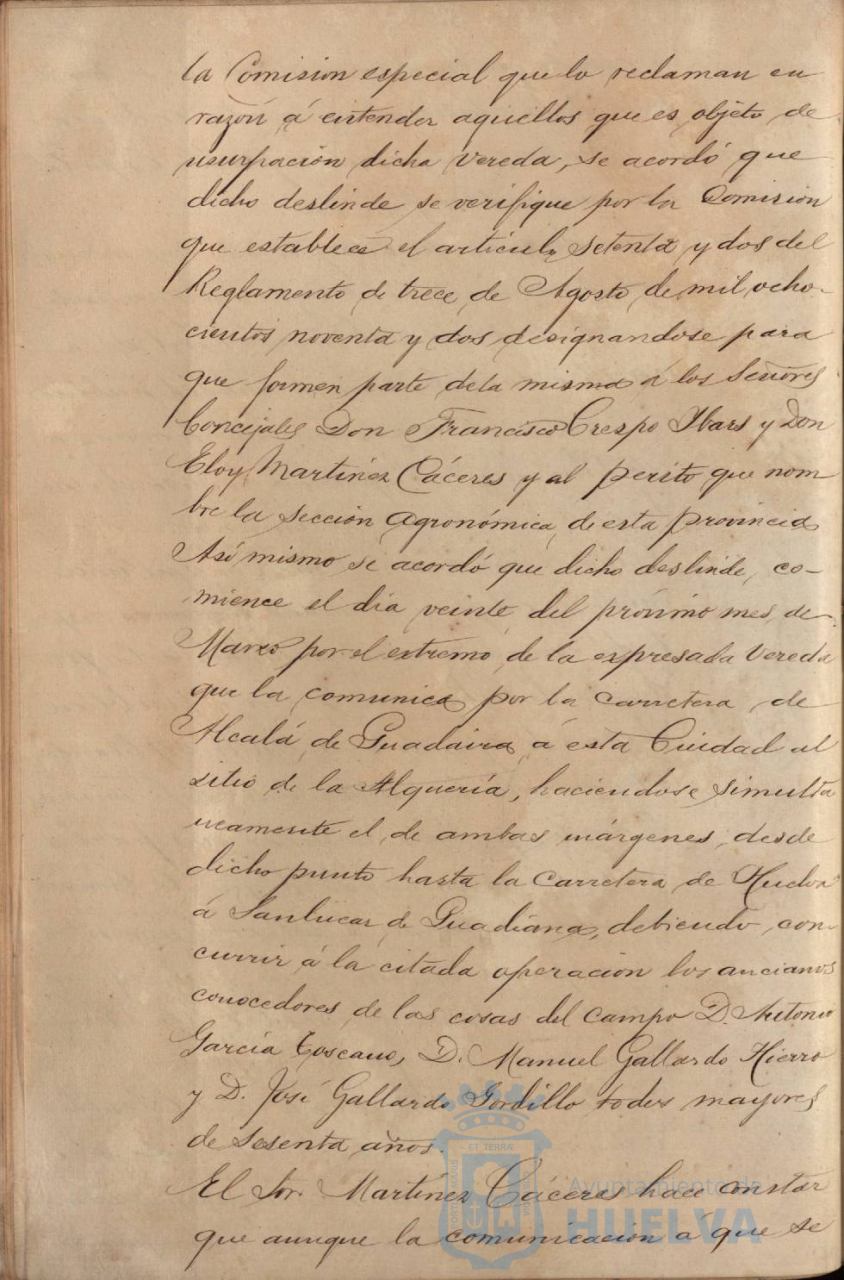 la Comision especial que lo reclaman en
razón á entender aquellos que es objeto de
usurpación dicha vereda, se acordó que
dicho deslinde se verifique por la Comision
que establece el artículo setenta y dos del
Reglamento de trece de Agosto de mil ocho-
cientos noventa y dos designandose para
que formen parte dela misma á los Señores
Concejales Don Francisco Crespo Ybars y Don
Eloy Martinez Cáceres y al perito que nom
bre la sección agronómica de esta provincia
Así mismo se acordó que dicho deslinde, co-
mience el dia veinte del próximo mes de
Marzo por el extremo de la expresada vereda
que la comunica por la carretera de
Alcalá de Guadaira á esta Ciudad al
sitio de la Alquería, haciendose simulta
neamente el de ambas márgenes desde
dicho punto hasta la carretera de Huelva
á Sanlucar de Guadiana, debiendo con
currir á la citada operacion los ancianos
conocedores de las cosas del campo D. Antonio
García Toscano, D. Manuel Gallardo Hierro
y D. José Gallardo Gordillo todos mayores
de sesenta años.
El Sor. Martinez Cáceres hace constar
que aunque la comunicacion á que se
Ayuntamiento de
HUELVA